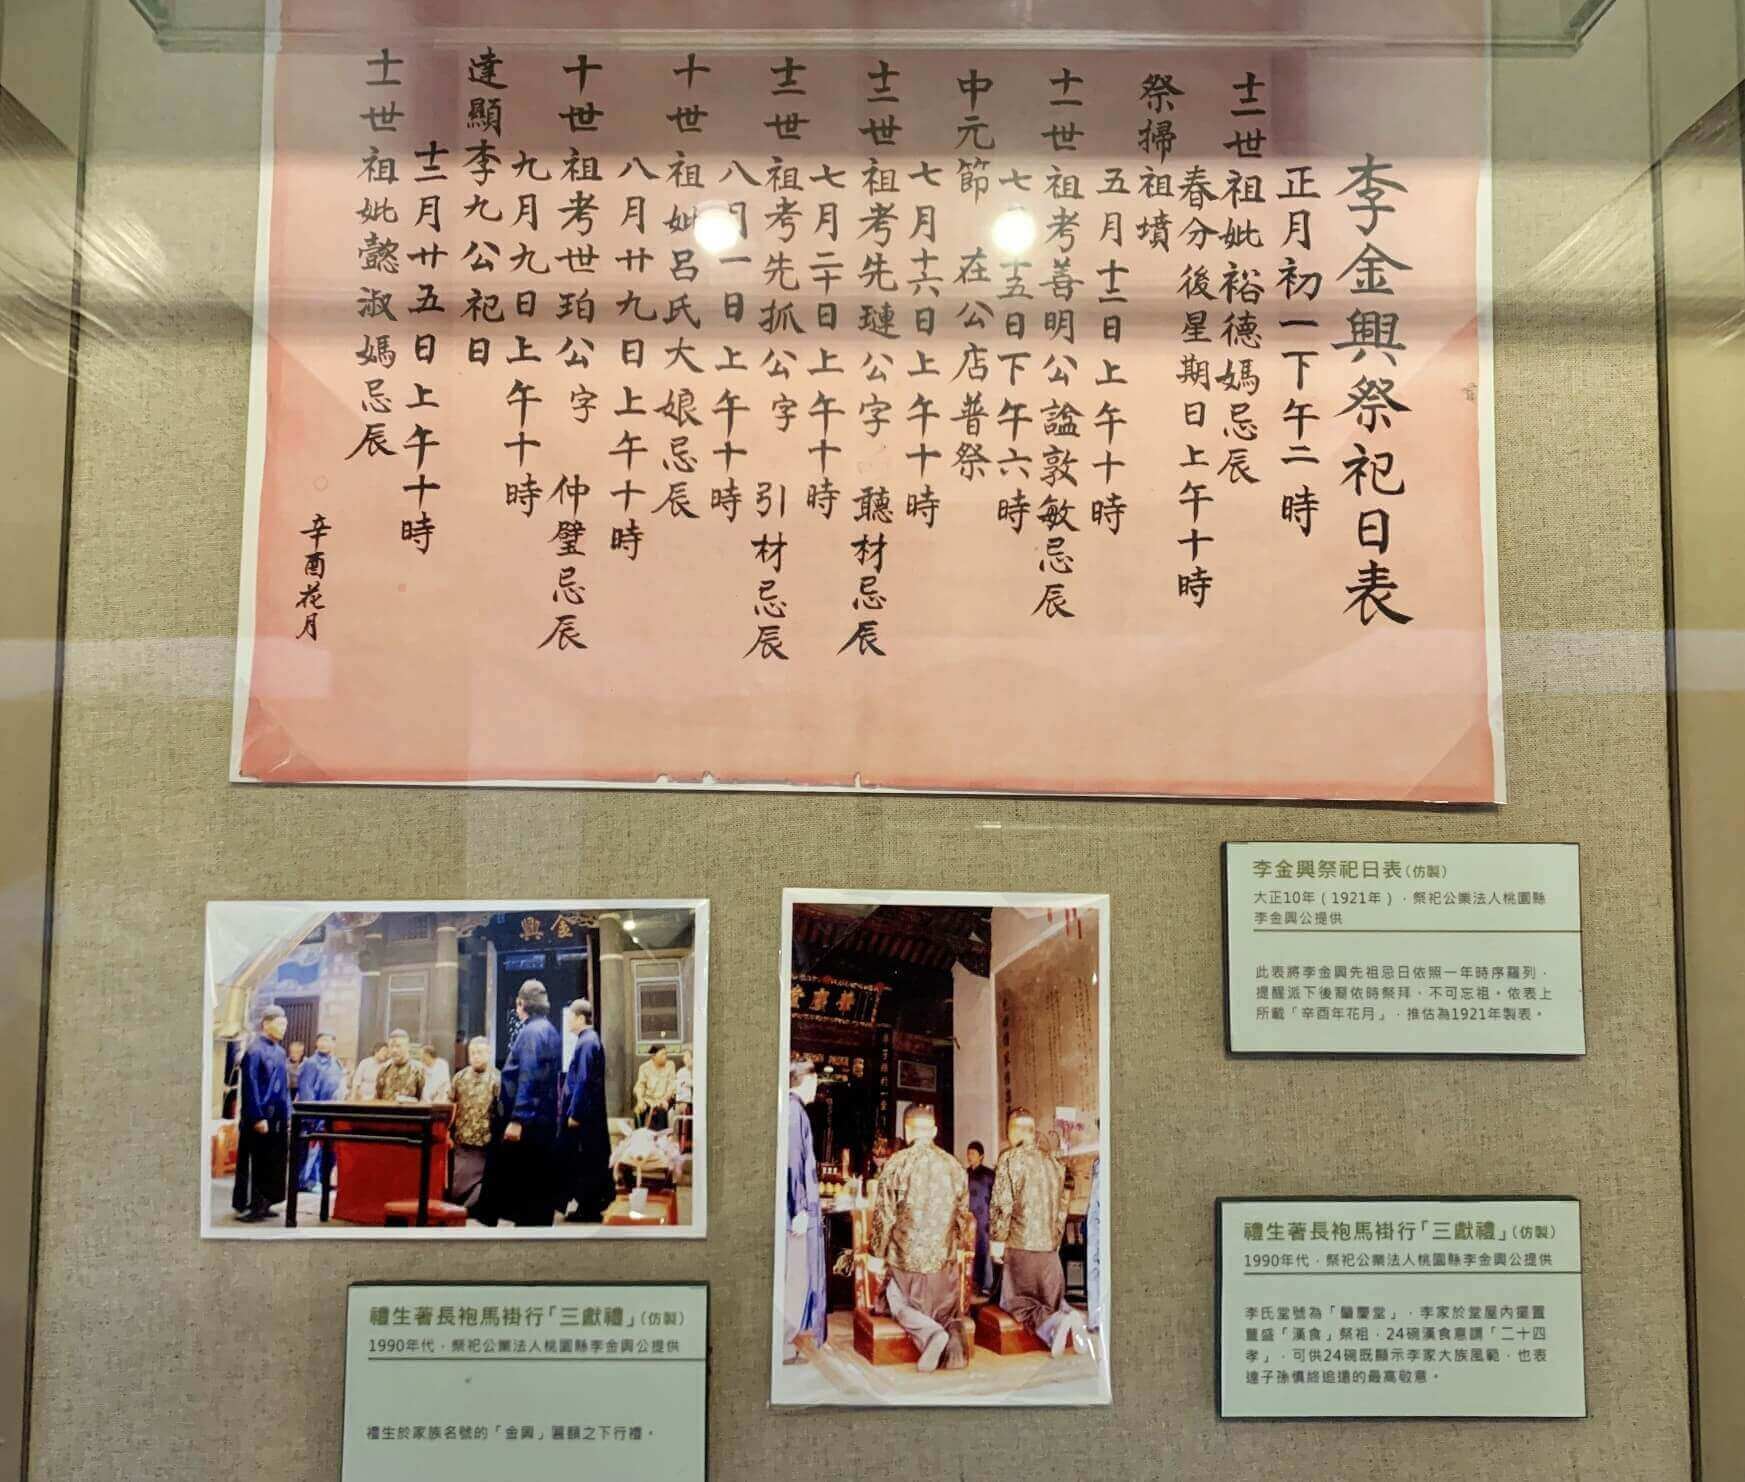 李金興祭祀日表
正月初一下午二時
十二世祖妣裕德媽忌辰
春分後星期日上午十時
祭掃祖墳
五月十二日上午十時
十一世祖考善明公諡敦敏忌辰
七五日下午六時
中元節 在公店普祭
七月十六日上午十時
十二世祖考先璉公字 聽材忌辰
七月二十日上午十時
十二世祖考先抓公字 引材忌辰
八月一日上午十時
十世祖妣呂氏大娘忌辰
八月廿九日上午十時
十世祖考世珀公字 仲璧忌辰
九月九日上午十時
達顯李九公祀日
十二月廿五日上午十時
十一世祖妣懿淑媽忌辰
辛酉花月
李金興祭祀日表(仿製)
大正10年(1921年)，祭祀公業法人桃園縣
李金興公提供
此表將李金興先祖忌日依照一年時序羅列，
提醒派下後裔依時祭拜，不可忘祖。依表上
所載「辛酉年花月」，推估為1921年製表。
金興
肇慶堂
禮生著長袍馬褂行「三獻禮」(仿製)
1990年代，祭祀公業法人桃園縣李金興公提供
禮生於家族名號的「金興」匾額之下行禮。
禮生著長袍馬褂行「三獻禮」(仿製)
1990年代，祭祀公業法人桃園縣李金興公提供
李氏堂號為「肇慶堂」，李家於堂屋內擺置
豐盛「漢食」祭祖，24碗漢食意謂「二十四
孝」，可供24碗既顯示李家大族風範，也表
達子孫慎終追遠的最高敬意。